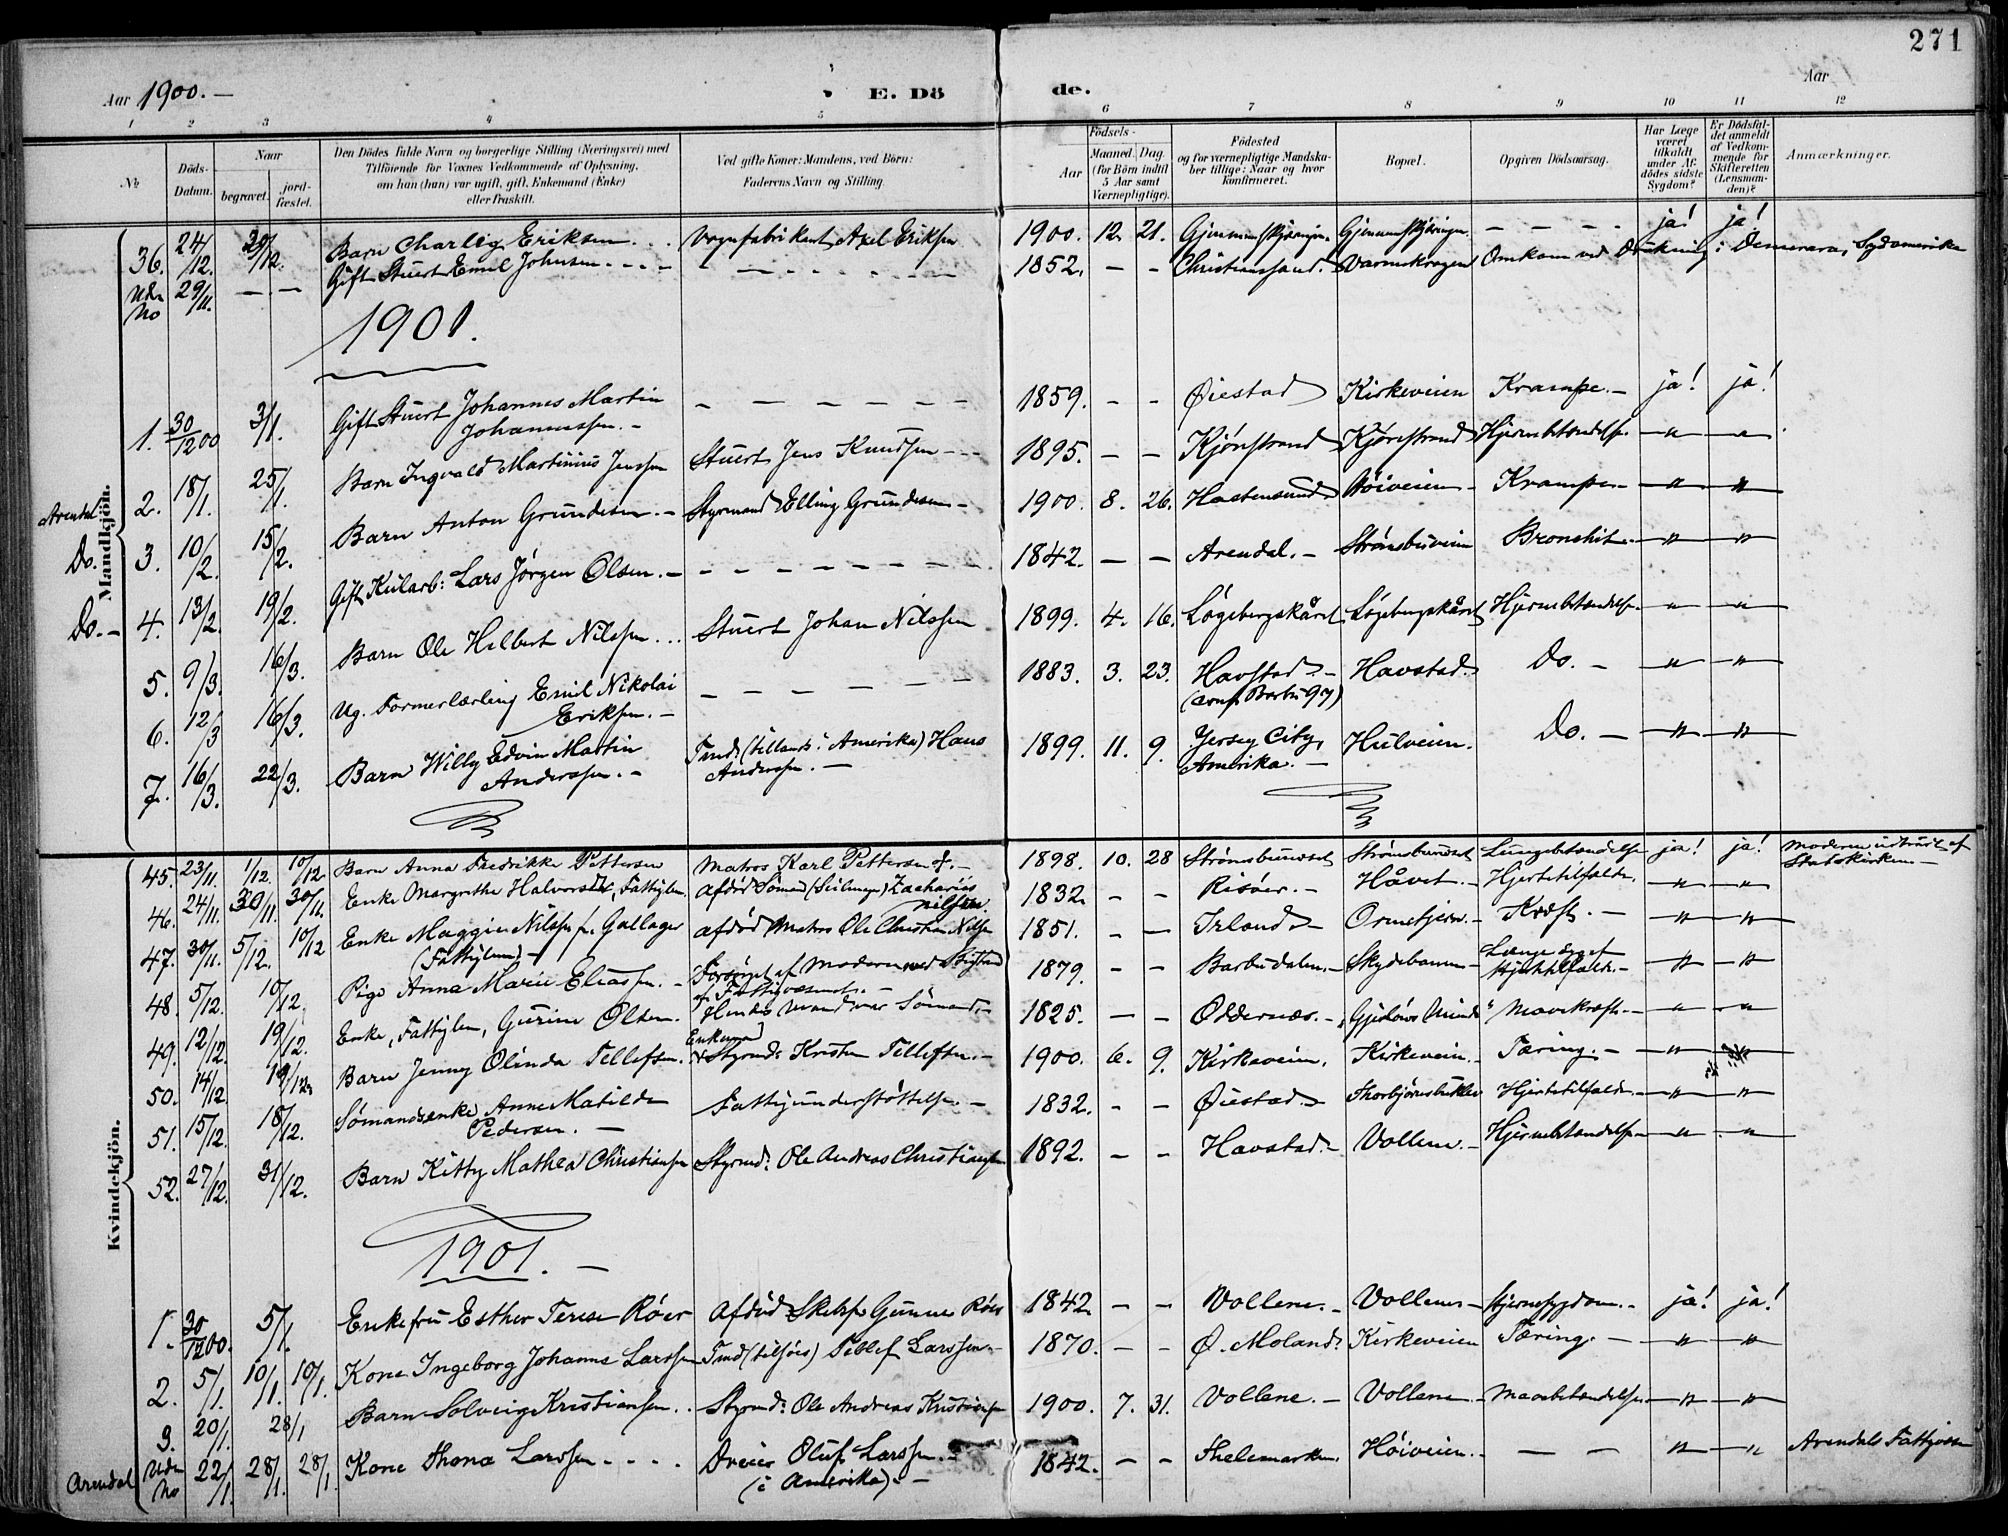 271
Aar 1900. —
E. Dö
de.
Aar
1 2 3 4 5 6 7 8 9 10 11 12
№
Döds-Datum.
Naar
begravet.
jord-fæstet.
Den Dödes fulde Navn og borgerlige Stilling (Næringsvei) med
Tilföiende for Voxnes Vedkommende af Oplysning,
om han (hun) var ugift, gift, Enkemand (Enke)
eller fraskilt.
Ved gifte Koner: Mandens, ved Börn:
Faderens Navn og Stilling.
Födsels-
Aar
Maaned. Dag.
(for Börn indtil
5 Aar samt
Værnepligtige).
Födested
og for værnepligtige Mandska-
ber tillige: Naar og hvor
konfirmeret.
Bopæl.
Opgiven Dödsaarsag.
Har Læge
været
tilkaldt
under Af-
dödes sidste
Sygdom?
Er Dödsfal-
det anmeldt
af Vedkom-
mende for
Skifteretten
(Lensman-
den)?
Anmærkninger.
Mandkjön.
36. 24/12. 30/12. Barn Charley Eriksen . . . Vognfabrikant Axel Eriksen 1900. 12. 21. - - - - ja! ja!
Udn No 29/11. — — Gift Stuert Emil Johnsen - - - - 1852. - - Christianssand. Omkom ved Drukning i Demerara, Sydamerika
1901.
1. 30/12 00 3/1. Gift Stuert Johannes Martin Johannessen. - 1859. - - Øiestad Kirkeveien Krampe. - ja! ja!
2. 18/1. 25/1. Barn Ingvald Martinius Jenssen Stuert Jens Knudsen - - 1895. - - Kjønstrand Kjønstrand Hjernebetændelse " "
Arendal.
Do. 3. 10/2. 15/2. Barn Anton Grundesen. - Styrmand Elling Grundesen - 1900. 8. 26. Høiveien - Krampe - " "
Do. - 4. 13/2. 19/2. Gift Kularb: Lars Jørgen Olsen. - 1842. - - Arendal. - Strømsbuveien Bronchit. " "
5. 9/3. 16/3. Barn Ole Hilbert Nilssen ... Stuert Johan Nilssen 1899. 4. 16. Løgebergskåret Løgebergskåret Hjernebetændelse " "
6. 12/3 16/3. Ug. Formerlærling Emil Nikolai Eriksen. - 1883. 3. 23. Havstad - (conf. Barbu 97) Havstad. Do. - " "
7. 16/3. 22/3. Barn Willy Edvin Martin Anderssen. - Tmd. (tillands i Amerika) Hans Anderssen. - 1899. 11. 9. Jersey City, Amerika. - Hulveien. Do. - " "
Kvindekjön.
45. 23/11. 1/12. 10/12. Barn Anna Fredrikke Pettersen Matros Karl Pettersen 1898. 10. 28 Strømsbuneset Strømsbuneset Lungebetændelse ja! ja! Moderen udtraadt af Statskirken -
46. 24/11. 30/11. 30/11. Enke Margrethe Halvorsen, Fattiglem afdød Sømand Zacharias Nilssen 1832. - - Risøer. - Håvet. - Hjertetilfælde. " "
47. 30/11. 5/12. 10/12 Enke Maggie Nilssen f. Gallager (Fattiglem) - afdød Matros Ole Christian Nilsen 1851. - - Irland - Ormetjern. - Kræft. - " "
48. 5/12. 10/12. Pige Anna Marie Eliassen. - Forsørget af Moderen med Bistand af Fattigvæsenet. - 1879. - - Barbudalen. - Skydebanen - Længe syg af Hjertetilfælde. - " "
49. 12/12. 19/12. Enke, Fattiglem, Gurine Olsen. Hendes Mand var Sømand. - 1825. - - Oddernæs. - Mavekræft. - " "
50. 14/12. 19/12. Barn Jenny Olinda Tellefsen. Enkemand Styrmd: Kristen Tellefsen. - 1900. 6. 9. Kirkeveien. Kirkeveien. - Tæring. - " "
51. 15/12. 18/12. Sømandsenke Anne Matilde Pedersen. - Fattigunderstøttelse. - 1832. - - Øiestad. - Thorbjørnsbuklev Hjertetilfælde. - " "
52. 27/12. 31/12. Barn Kitty Mathea Christiansen Styrmd: Ole Andreas Christiansen 1892. - - Havstad. - Vollene. - Hjernebetændelse - " "
1901. -
1. 30/12 00. 5/1. Enkefru Esther Terese Røer afdød Skibsf. Gunne Røer 1842 - - Vollene. - Vollene - Hjernesygdom. - ja! ja!
2. 5/1. 10/1. 10/1. Kone Ingeborg Johanne Larssen Tmd (tilsjøs) Tellef Larssen. - 1870. - - Ø. Moland. Kirkeveien Tæring. - " "
3. 20/1. 28/1 Barn Solveig Kristiansen. . Styrmd: Ole Andreas Kristiansen 1900. 7. 31. Vollene. - Vollene - Mavebetændelse. " "
Arendal Uden No 22/1. 28/1. 28/1. Kone Thona Larssen - . . . Dreier Oluf Larssen. - (i Amerika). - 1842. - - Thelemarken. Høiveien. - - - " " Arendals Fattigvæsen